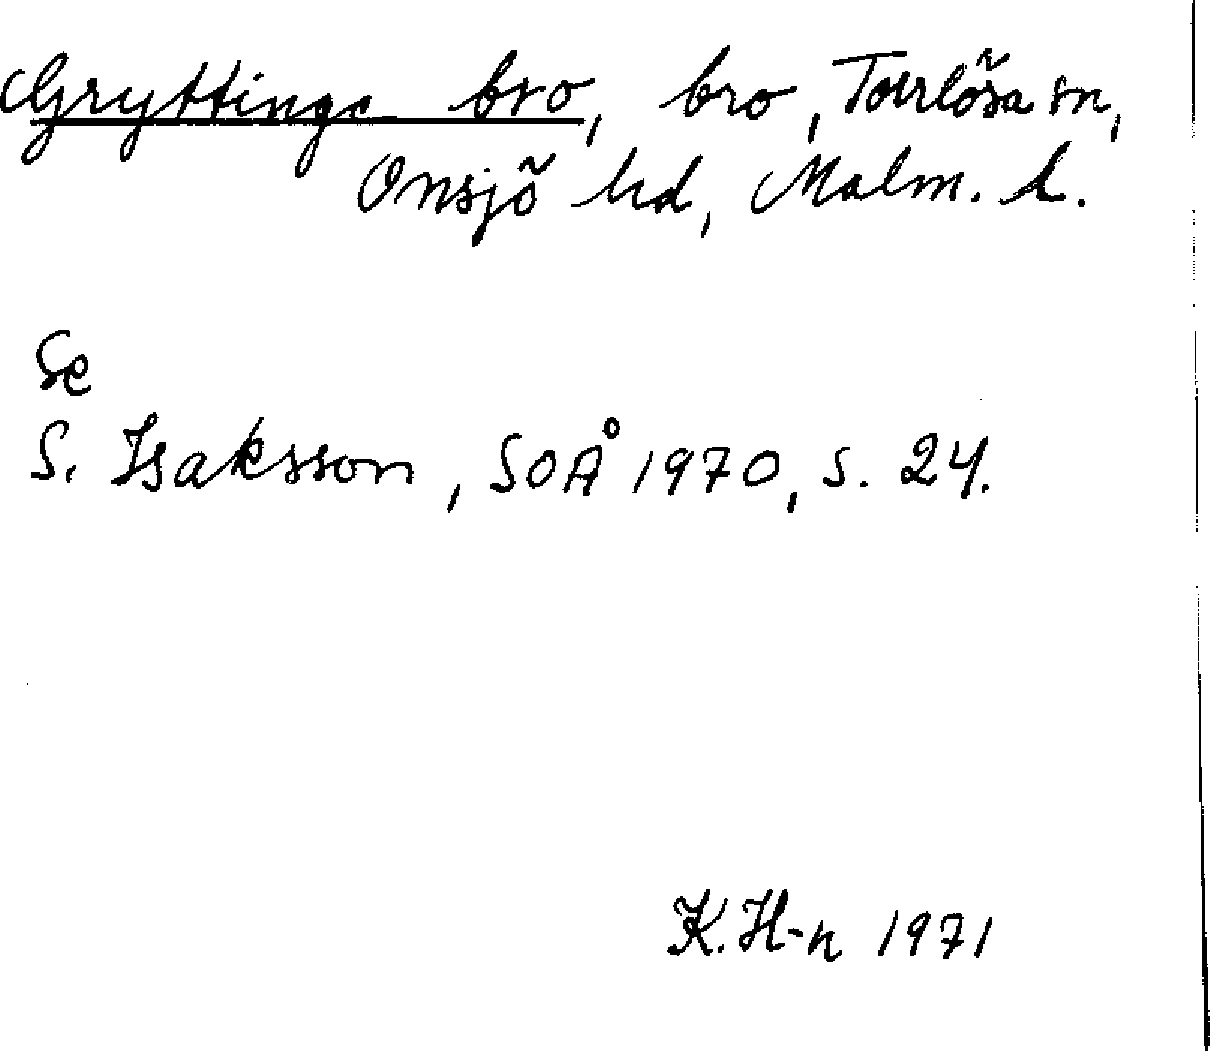 Gryttinge bro, bro, Torrlösa sn,
Onsjö hd, Malm. l.
Se
S. Isaksson, SOÅ 1970, s. 24.
K. H-n 1971